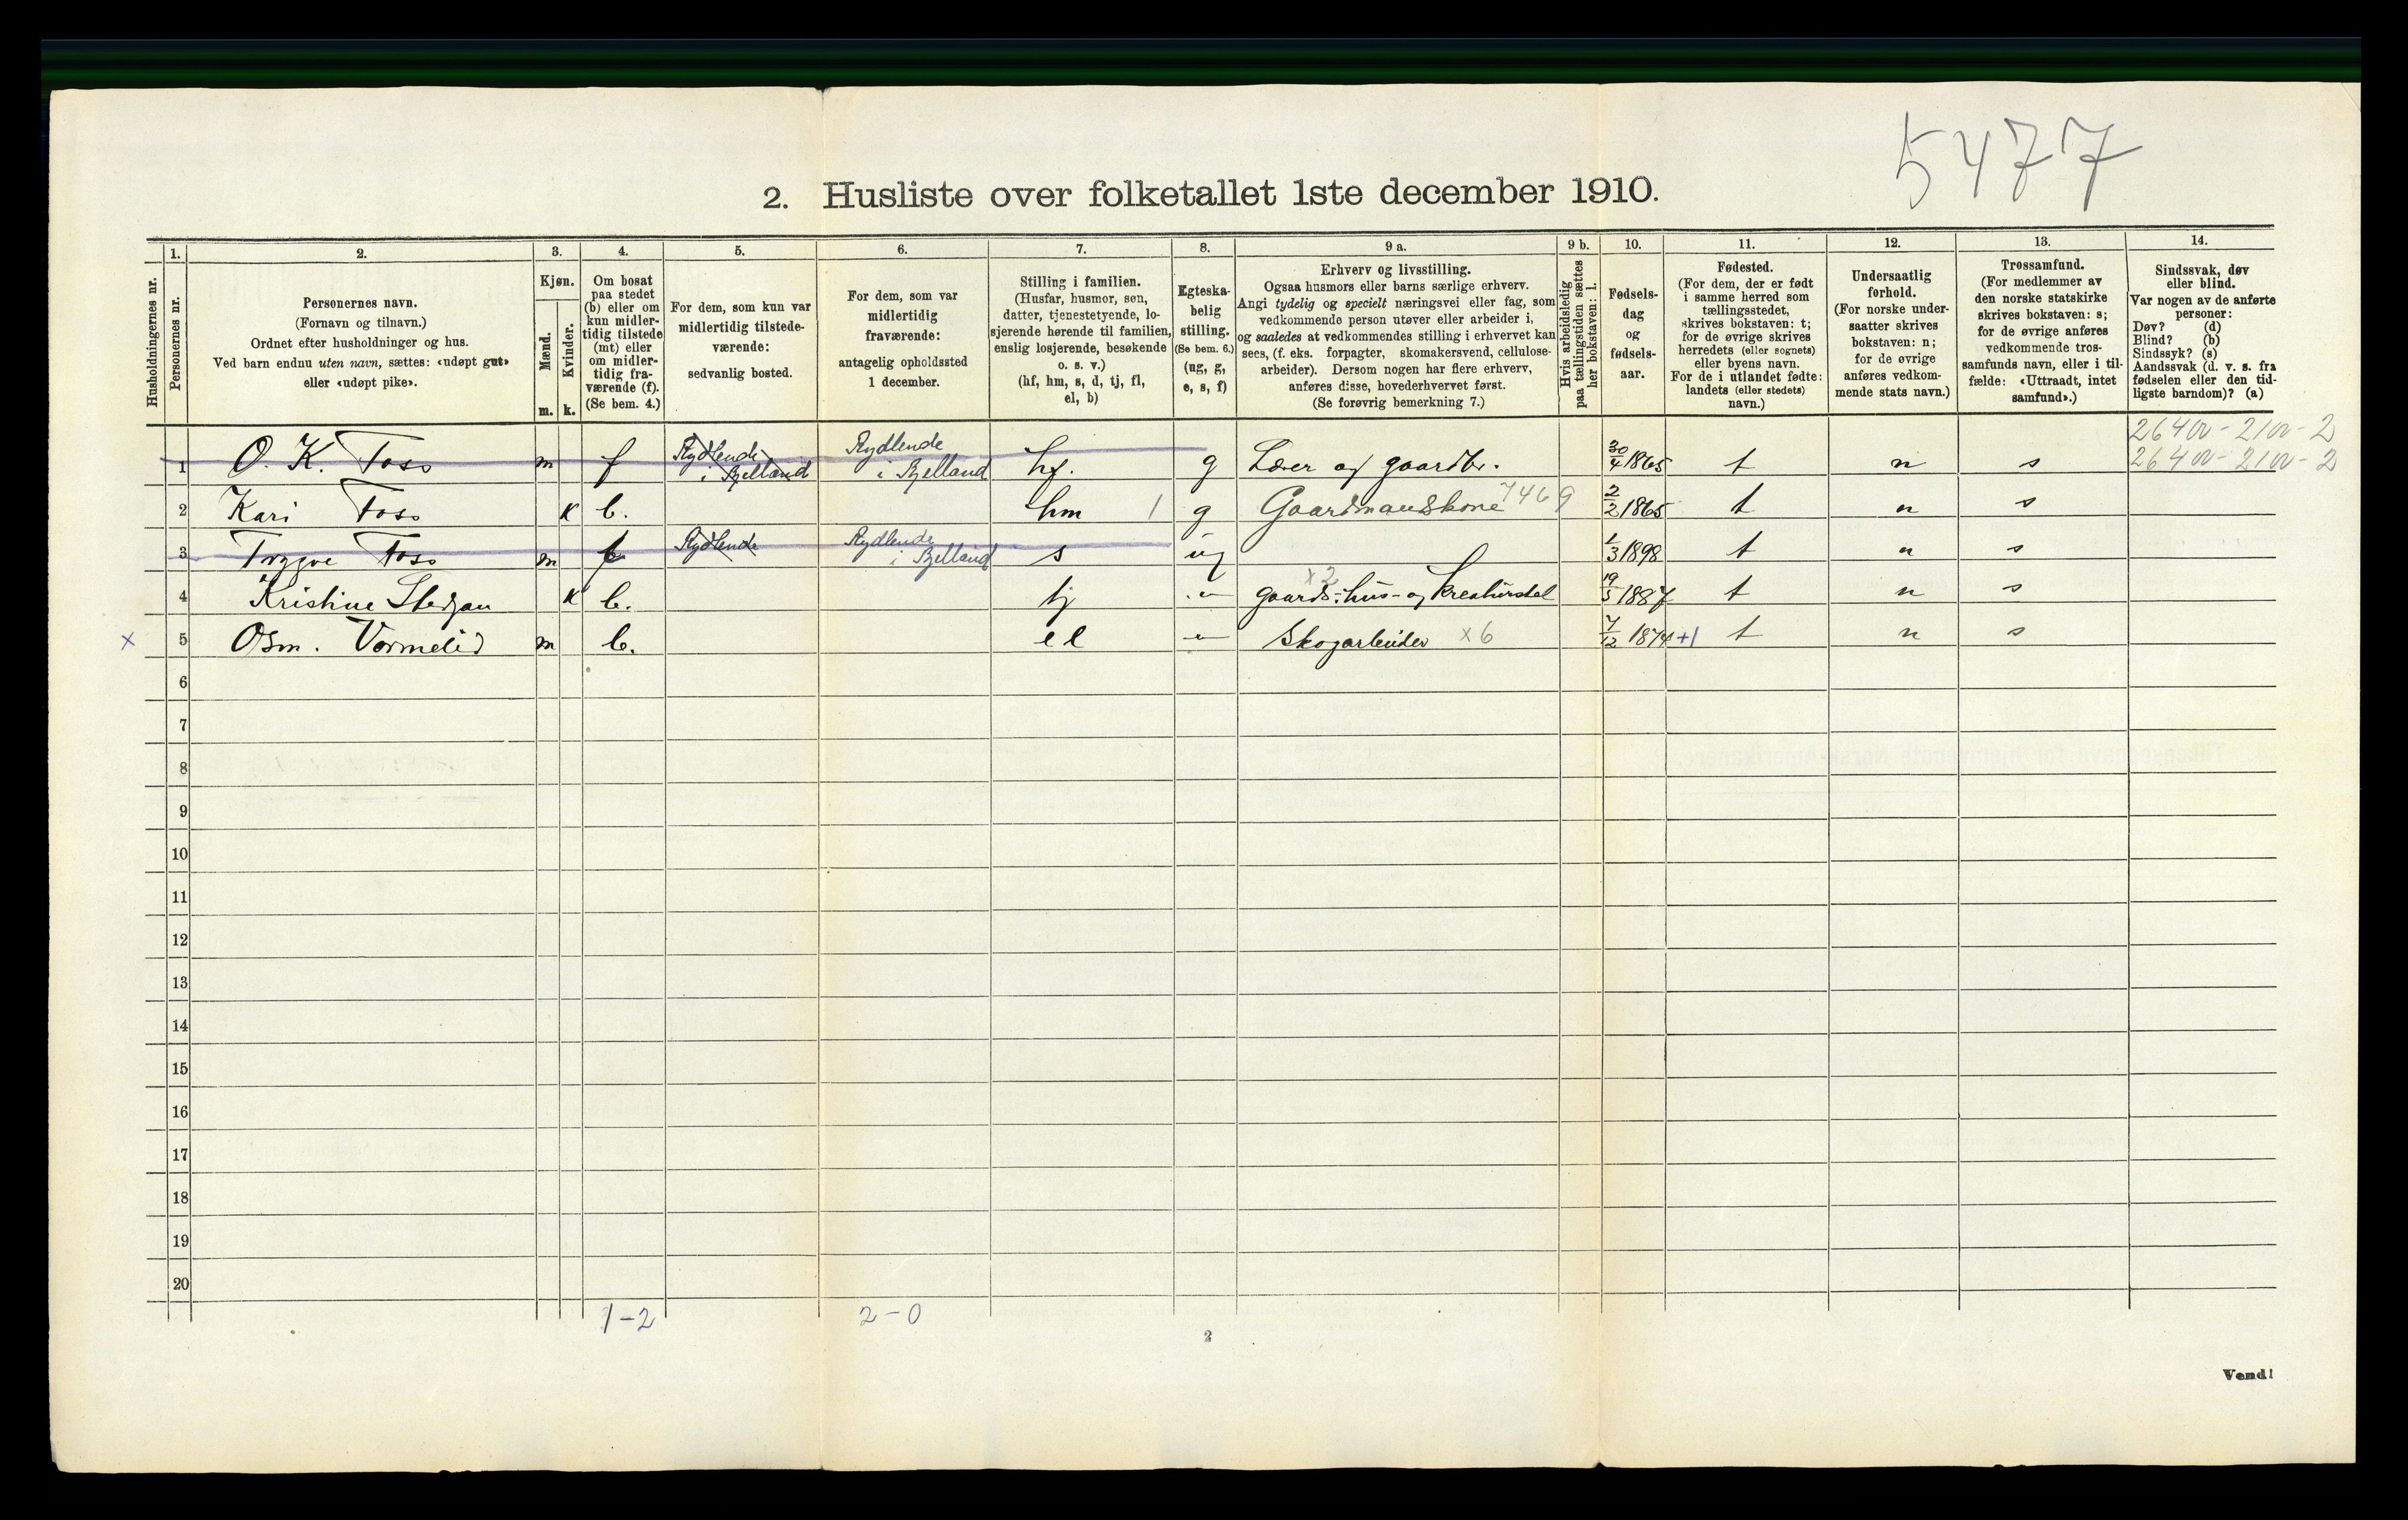 5477
2. Husliste over folketallet 1ste december 1910.
Husholdningernes nr.
1.
Personernes nr.
2.
Personernes navn.
(Fornavn og tilnavn.)
Ordnet efter husholdninger og hus.
Ved barn endnu uten navn, sættes: «udøpt gut»
eller «udøpt pike».
3.
Kjøn.
Mænd.
m.
Kvinder.
k.
4.
Om bosat
paa stedet
(b) eller om
kun midler-
tidig tilstede
(mt) eller
om midler-
tidig fra-
værende (f).
(Se bem. 4.)
5.
For dem, som kun var
midlertidig tilstede-
værende:
sedvanlig bosted.
6.
For dem, som var
midlertidig
fraværende:
antagelig opholdssted
1 december.
7.
Stilling i familien.
(Husfar, husmor, søn,
datter, tjenestetyende, lo-
sjerende hørende til familien,
enslig losjerende, besøkende
o. s. v.)
(hf, hm, s, d, tj, fl,
el, b)
8.
Egteska-
belig
stilling.
(Se bem. 6.)
(ug, g,
e, s, f)
9 a.
Erhverv og livsstilling.
Ogsaa husmors eller barns særlige erhverv.
Angi tydelig og specielt næringsvei eller fag, som
vedkommende person utøver eller arbeider i,
og saaledes at vedkommendes stilling i erhvervet kan
sees, (f. eks. forpagter, skomakersvend, cellulose-
arbeider). Dersom nogen har flere erhverv,
anføres disse, hovederhvervet først.
(Se forøvrig bemerkning 7.)
9 b.
Hvis arbeidsledig
paa tællingstiden sættes
her bokstaven: l.
10.
Fødsels-
dag
og
fødsels-
aar.
11.
Fødested.
(For dem, der er født
i samme herred som
tællingsstedet,
skrives bokstaven: t;
for de øvrige skrives
herredets (eller sognets)
eller byens navn.
For de i utlandet fødte:
landets (eller stedets)
navn.)
12.
Undersaatlig
forhold.
(For norske under-
saatter skrives
bokstaven: n;
for de øvrige
anføres vedkom-
mende stats navn.)
13.
Trossamfund.
(For medlemmer av
den norske statskirke
skrives bokstaven: s;
for de øvrige anføres
vedkommende tros-
samfunds navn, eller i til-
fælde: «Uttraadt, intet
samfund».)
14.
Sindssvak, døv
eller blind.
Var nogen av de anførte
personer:
Døv? (d)
Blind? (b)
Sindssyk? (s)
Aandssvak (d. v. s. fra
fødselen eller den tid-
ligste barndom)? (a)
26400-2100-2
1 O. K. Foss m f Rydlende i Bjelland Rydlende i Bjelland hf. g Lærer og gaardbr. 30/4 1865 t n s 26400-2100-2
2 Kari Foss K b. hm 1 g Gaardmandskone 7469 2/2 1865 t n s
3 Trygve Foss m f Rydlende Rydlende i Bjelland s ug 1/3 1898 t n s
4 Kristine K b. tj -"- gaards- hus- og kreaturstel x2 19/5 1887 t n s
x 5 Osm. Vormelid m b. el -"- Skogarbeider x6 7/12 1874 +1 t n s
6
7
8
9
10
11
12
13
14
15
16
17
18
19
20
1-2 2-0
2
Vend!